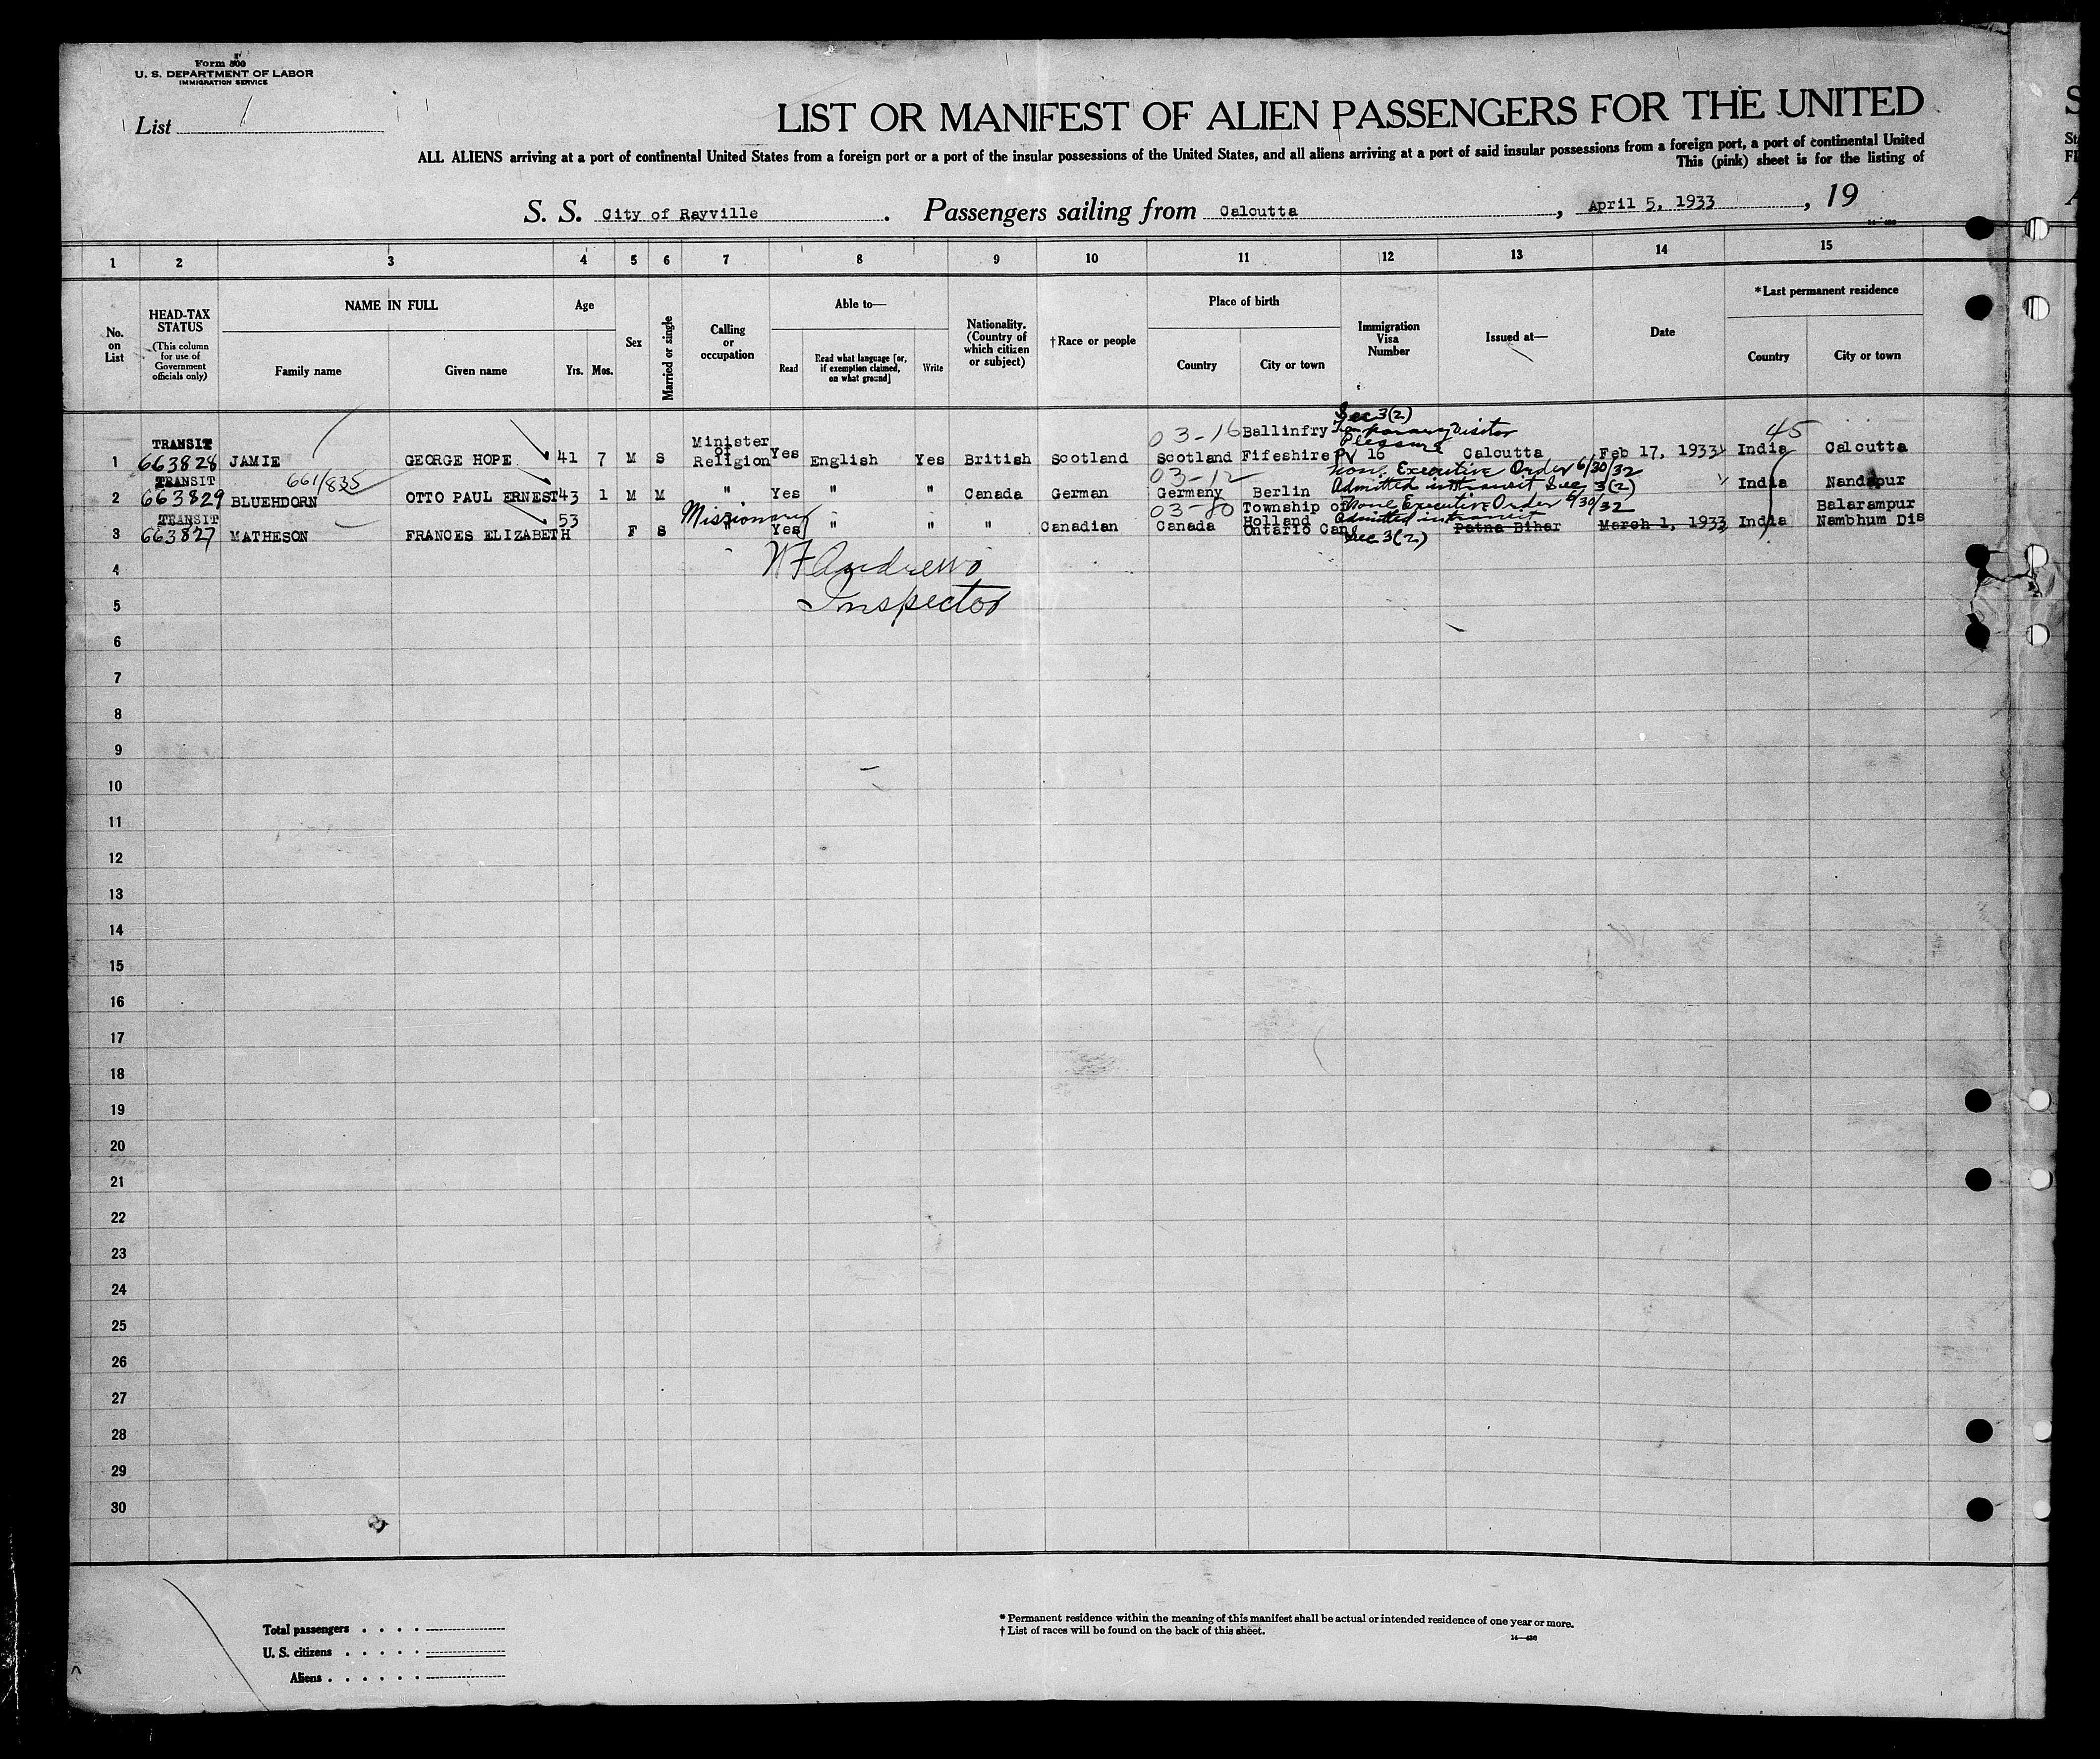 Form 500
U. S. DEPARTMENT OF LABOR
IMMIGRATION SERVICE
List 1
LIST OR MANIFEST OF ALIEN PASSENGERS FOR THE UNITED
ALL ALIENS arriving at a port of continental United States from a foreign port or a port of the insular possessions of the United States, and all aliens arriving at a port of said insular possessions from a foreign port, a port of continental United
This (pink) sheet is for the listing of
S. S. City of Rayville. Passengers sailing from Calcutta, April 5, 1933, 19
1 2 3 4 5 6 7 8 9 10 11 12 13 14 15
No. on List
HEAD-TAX STATUS
(This column for use of Government officials only)
NAME IN FULL
Family name Given name
Age
Yrs. Mos.
Sex
Married or single
Calling or occupation
Able to—
Read
Read what language [or, if exemption claimed, on what ground]
Write
Nationality. (Country of which citizen or subject)
†Race or people
Place of birth
Country City or town
Immigration Visa Number
Issued at—
Date
*Last permanent residence
Country City or town
Sec 3(2)
TRANSIT Minister of 03-16 Ballinfry Temporary Visitor Pleasure 45
1 663828 JAMIE GEORGE HOPE 41 7 M S Religion Yes English Yes British Scotland Scotland Fifeshire PV 16 Calcutta Feb 17, 1933 India Calcutta
TRANSIT 661/835 03-12 None Executive Order 6/30/32
2 663829 BLUEHDORN OTTO PAUL ERNEST 43 1 M M " Yes " " Canada German Germany Berlin Admitted in transit Sec 3(2) India Nandapur
TRANSIT 53 Missionary 03-80 Township of None Executive Order 6/30/32 Balarampur
3 663827 MATHESON FRANCES ELIZABETH F S Yes " " " Canadian Canada Holland Ontario Can Admitted in transit Sec 3(2) Patna Bihar March 1, 1933 India Nambhum Dis
4 W F Andrews
5 Inspector
6
7
8
9
10
11
12
13
14
15
16
17
18
19
20
21
22
23
24
25
26
27
28
29
30
Total passengers
U. S. citizens
Aliens
* Permanent residence within the meaning of this manifest shall be actual or intended residence of one year or more.
† List of races will be found on the back of this sheet.